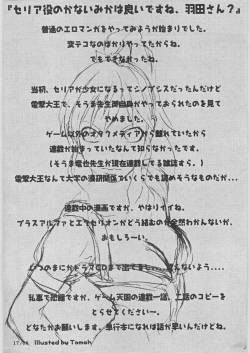 『セリア役のかないみかは良いですね、羽田さん?』
普通のエロマンガをやってみようが始まりでした。
変テコなのばかりやってたからね。
でもできなかったね。
当初、セリアが少女になるってシノプシスだったんだけど
電撃大王で、そうま先生御自身がやっておられたのを見て
やめました。
ゲーム以外のオタクメディアから離れていたから
連載が始まっていたなんて知らなかったです。
(そうま竜也先生が現在連載してる雑誌すら。)
電撃大王なんて大学の漫研関係でいくらでも読めそうなものだが...
連載中の漫画ですが、やはりイイね。
プラスアルファとエクセリオンがどう絡むのか全然わかんないが、
おもしろーい。
いつのまにかドラマCDまで出てまし...
私事で恐縮ですが、ゲーム天国の連載一話、二話のコピーを
とらせてくださいー。
どなたかお願いします。単行本になれば話が早いんだけどね。
illusted by Tamah